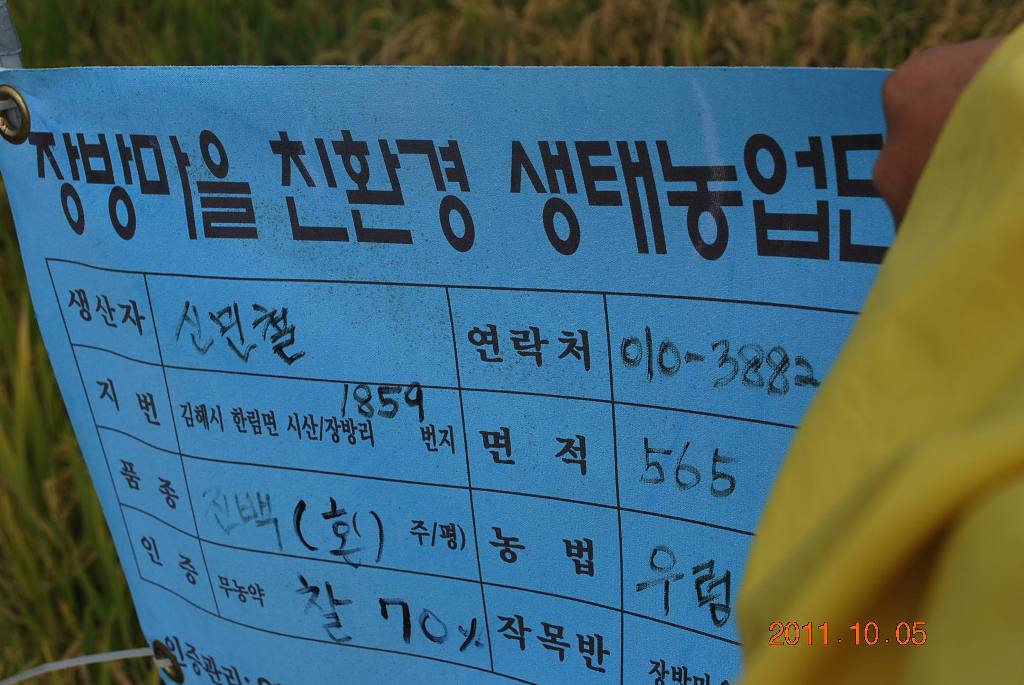 장방마을 친환경 생태농업단
생산자 신민철 연락처 010-3882
1859
지번 김해시 한림면 시산/장방리 번지 면적 565
품종 진백 (혼) 주/평) 농법 우렁
인증 무농약 찰 70% 작목반 장방마
인증관리:
2011.10.05